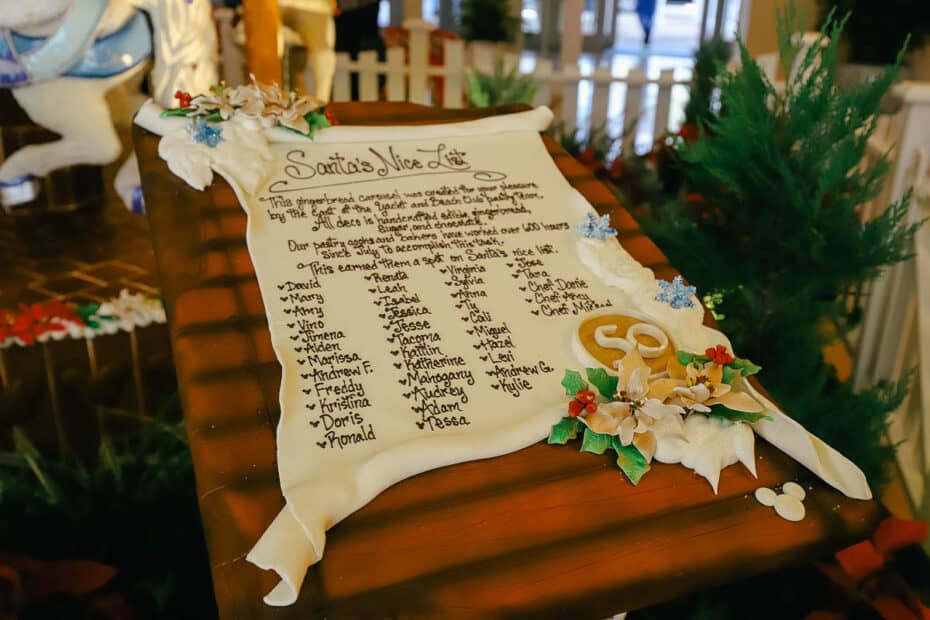 Santa's Nice List
This gingerbread carousel was created for your pleasure
by the cast of the Yacht and Beach Club Pastry Team.
All deco is handcrafted edible gingerbread,
sugar, and chocolate.
Our pastry and bakers have worked over 600 hours
since July to accomplish this task.
This earned them a spot on Santa's nice list.
David
Mary
Amy
Vino
Jimena
Aiden
Marissa
Andrew F.
Freddy
Kristina
Doris
Ronald
Renata
Leah
Isabel
Jessica
Jesse
Tacoma
Kaitlin
Katherine
Mahogany
Audrey
Adam
Tessa
Virginia
Sylvia
Anna
Ty
Cali
Miguel
Hazel
Lesi
Andrew G.
Kylie
Jose
Tara
Chef Dorie
Chef Amy
Chef Mike
50